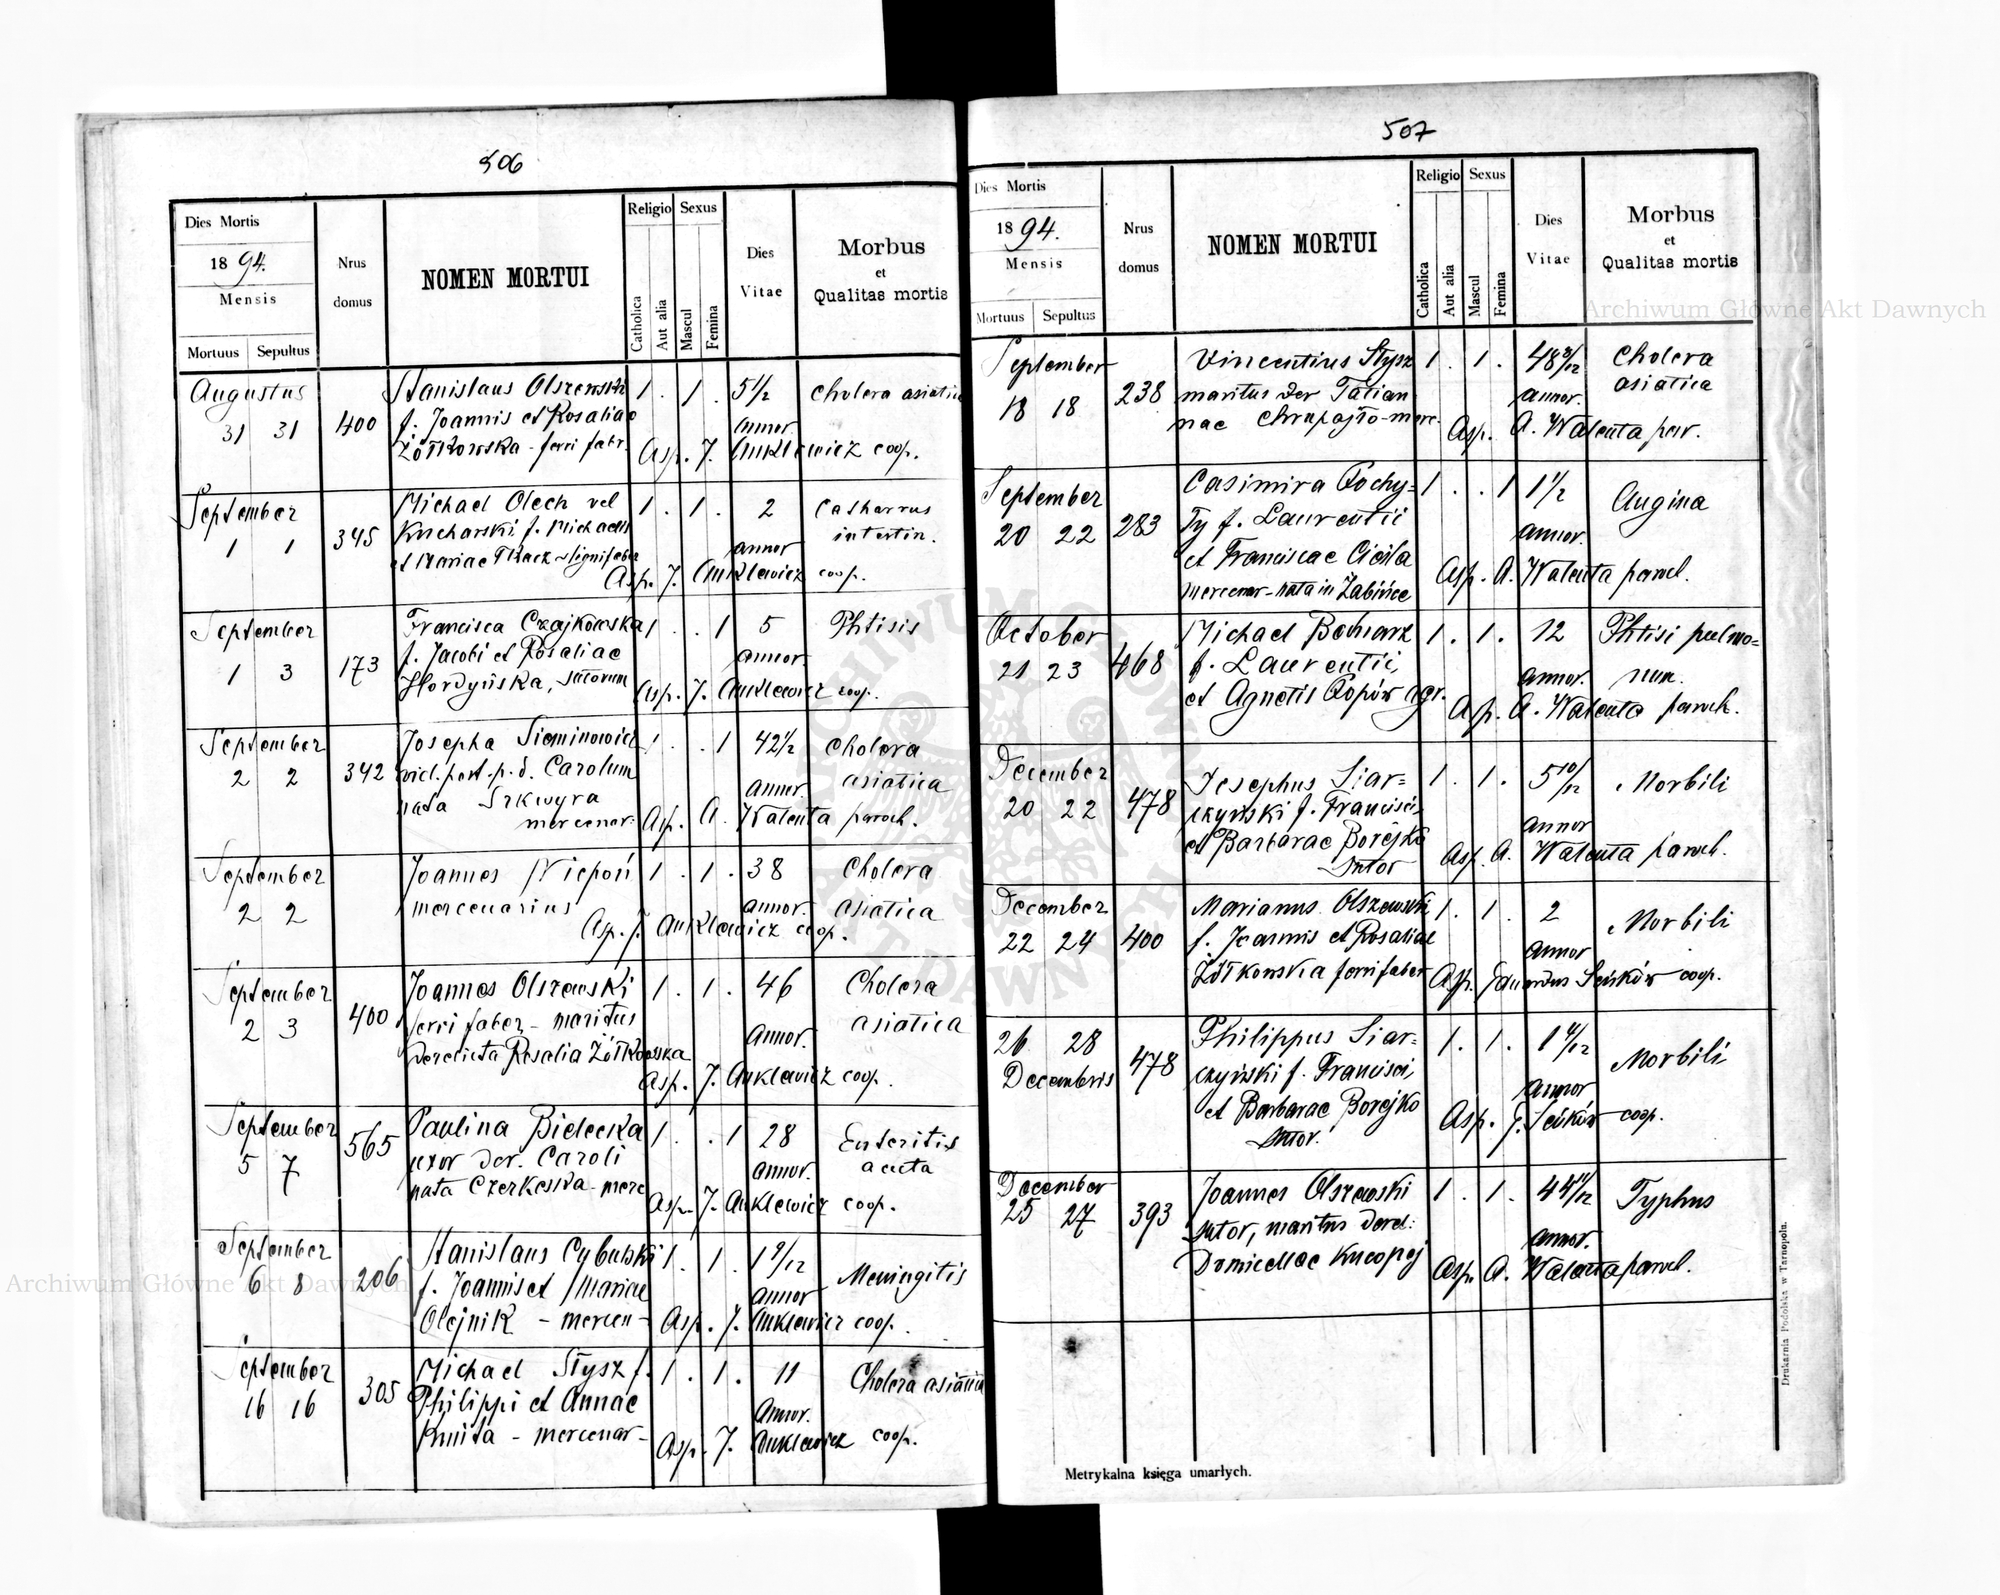 506
Dies Mortis
1894.
Mensis
Mortuus Sepultus
Nrus domus
NOMEN MORTUI
Religio
Catholica
Aut alia
Sexus
Mascul
Femina
Dies Vitae
Morbus
et
Qualitas mortis
Augustus
31 31
400
Stanislaus Olszewski
f. Joannis et Rosaliae
Żółkowska - ferri fabr.
1 . 1 .
5 1/2
annor.
Cholera asiatica
Asp. J. Auklewicz coop.
September
1 1
345
Michael Olech vel
Kucharski f. Michaelis
et Mariae Tkacz - lignifaber
1 . 1 .
2
annor
Catharrus
intestin.
Asp. J. Auklewicz coop.
September
1 3
173
Francisca Czajkowska
f. Jacobi et Rosaliae
Hordyńska, sutorum
1 . . 1
5
annor.
Phtisis
Asp. J. Auklewicz coop.
September
2 2
342
Josepha Sieminowicz
vid. post. p. d. Carolum
nata Szkwyra
mercenar.
1 . . 1
42 1/2
annor.
Cholera
asiatica
Asp. A. Walenta paroch.
September
2 2
Joannes Niepoń
mercenarius
1 . 1 .
38
annor.
Cholera
asiatica
Asp. J. Auklewicz coop.
September
2 3
400
Joannes Olszewski
ferri faber - maritus
derelicta Rosalia Żółkowska
1 . 1 .
46
annor.
Cholera
asiatica
Asp. J. Auklewicz coop.
September
5 7
565
Paulina Bielecka
uxor der. Caroli
nata Czerkeska - merc
1 . . 1
28
annor.
Enteritis
acuta
Asp. J. Auklewicz coop.
September
6 8
206
Stanislaus Cybulski
f. Joannis et Mariae
Olejnik - mercen -
1 . 1 .
1 9/12
annor
Meningitis
Asp. J. Auklewicz coop.
September
16 16
305
Michael Stysz f.
Philippi et Annae
Kmita - mercenar -
1 . 1 .
11
annor.
Cholera asiatica
Asp. J. Auklewicz coop.
507
Dies Mortis
1894.
Mensis
Mortuus Sepultus
Nrus domus
NOMEN MORTUI
Religio
Catholica
Aut alia
Sexus
Mascul
Femina
Dies Vitae
Morbus
et
Qualitas mortis
September
18 18
238
Vincentius Stysz
maritus der Tatian-
nae - merc.
1 . 1 .
annor.
Cholera
asiatica
Asp. A. Walenta par.
September
20 22
283
Casimira Pochy=
ty f. Laurentii
et Franciscae Cicila
mercenar - nata in Żabińce
1 . . 1
1 1/2
annor.
Angina
Asp. A. Walenta paroch.
October
21 23
468
Michael Bednarz
f. Laurentii,
et Agnetis Popów agr.
1 . 1 .
12
annor.
Phtisi pulmo=
num.
Asp. A. Walenta paroch.
December
20 22
478
Josephus Siar=
czyński f. Francisci,
et Barbarae Borejko
Sutor
1 . 1 .
5 10/12
annor
Morbili
Asp. A. Walenta paroch.
December
22 24
400
Marianus Olszewski
f. Joannis et Rosaliae
Żółkowska ferri faber
1 . 1 .
2
annor
Morbili
Asp. Seńków coop.
26 28
Decembris
478
Philippus Siar=
czyński f. Francisci,
et Barbarae Borejko
Sutor.
1 . 1 .
annor
Morbili
Asp. J. Seńków coop.
December
25 27
393
Joannes Olszewski
sutor, maritus derel:
Domicellae
1 . 1 .
44 11/12
annor.
Typhus
Asp. A. Walenta paroch.
Metrykalna księga umarłych.
Drukarnia Podolska w Tarnopolu.
Archiwum Główne Akt Dawnych
Archiwum Główne Akt Dawnych
ARCHIWUM GŁÓWNE AKT DAWNYCH